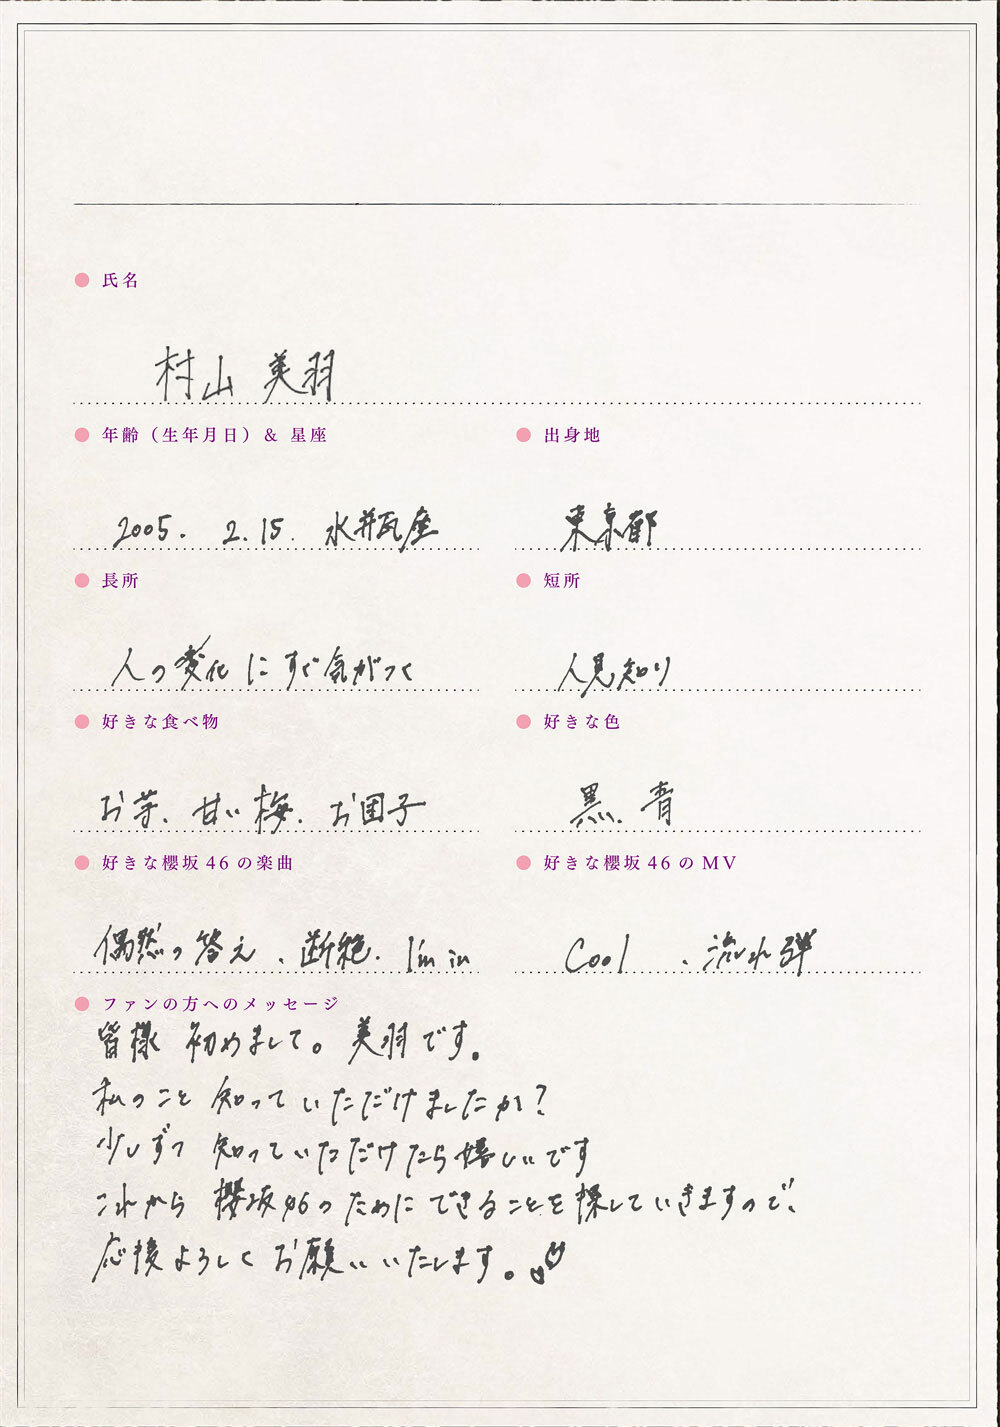 氏名
村山 美羽
年齢（生年月日）& 星座
2005. 2.15. 水瓶座
出身地
東京都
長所
人の変化にすぐ気がつく
短所
人見知り
好きな食べ物
お芋、甘い梅、お団子
好きな色
黒、青
好きな櫻坂46の楽曲
偶然の答え、断絶、I'm in
好きな櫻坂46のMV
Cool 、流れ弾
ファンの方へのメッセージ
皆様 初めまして。美羽です。
私のこと 知っていただけましたか?
少しずつ 知っていただけたら嬉しいです
これから 櫻坂46のためにできることを探していきますので、
応援よろしくお願いいたします。